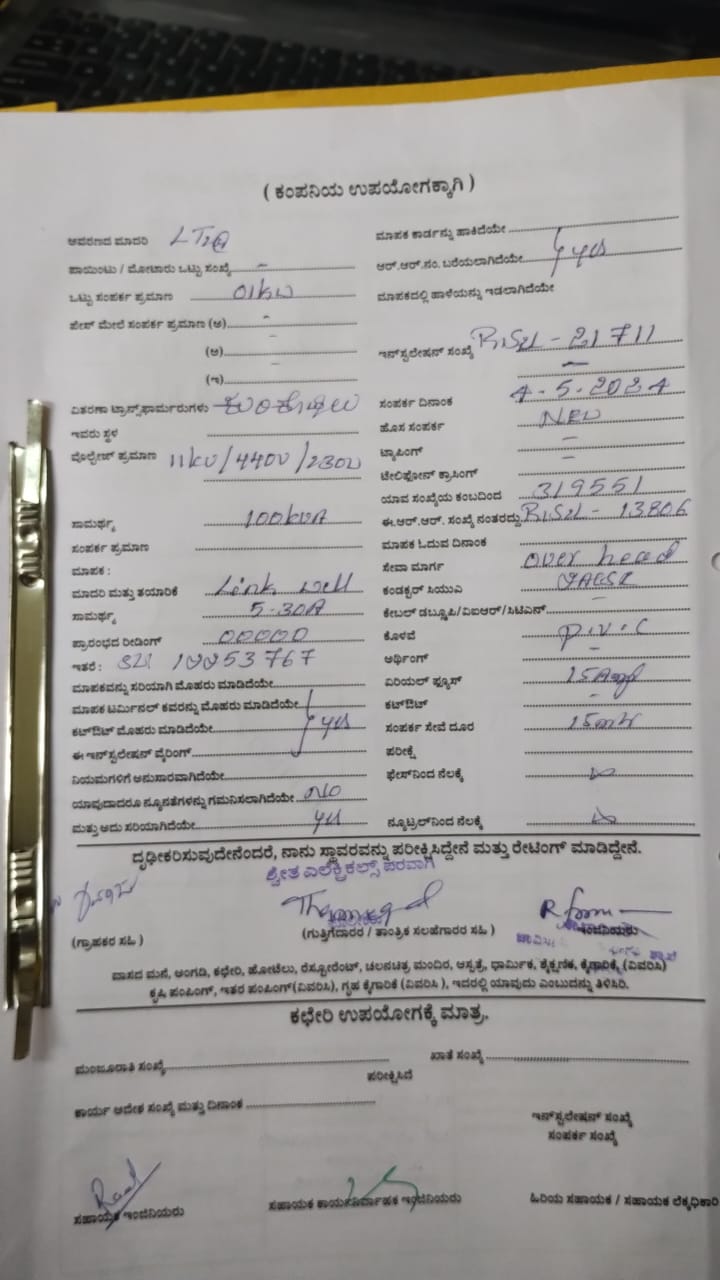 ( ಕಂಪನಿಯ ಉಪಯೋಗಕ್ಕಾಗಿ )
ಆವರಣದ ಮಾದರಿ LT2
ಪಾಯಿಂಟು / ಮೋಟಾರು ಒಟ್ಟು ಸಂಖ್ಯೆ -
ಒಟ್ಟು ಸಂಪರ್ಕ ಪ್ರಮಾಣ 01kw
ಫೇಸ್ ಮೇಲೆ ಸಂಪರ್ಕ ಪ್ರಮಾಣ (ಅ) -
(ಆ) -
(ಇ) -
ವಿತರಣಾ ಟ್ರಾನ್ಸ್‌ಫಾರ್ಮರುಗಳು
ಇವರು ಸ್ಥಳ
ವೊಲ್ಟೇಜ್ ಪ್ರಮಾಣ 11kv/440v/230v
ಸಾಮರ್ಥ್ಯ 100kvA
ಸಂಪರ್ಕ ಪ್ರಮಾಣ
ಮಾಪಕ :
ಮಾದರಿ ಮತ್ತು ತಯಾರಿಕೆ Link well
ಸಾಮರ್ಥ್ಯ 5-30A
ಪ್ರಾರಂಭದ ರೀಡಿಂಗ್ 00000
ಇತರೆ :
ಮಾಪಕವನ್ನು ಸರಿಯಾಗಿ ಮೊಹರು ಮಾಡಿದೆಯೇ
ಮಾಪಕ ಟರ್ಮಿನಲ್ ಕವರನ್ನು ಮೊಹರು ಮಾಡಿದೆಯೇ
ಕಟ್‌ಔಟ್ ಮೊಹರು ಮಾಡಿದೆಯೇ yes
ಈ ಇನ್‌ಸ್ಟಲೇಷನ್ ವೈರಿಂಗ್
ನಿಯಮಗಳಿಗೆ ಅನುಸಾರವಾಗಿದೆಯೇ
ಯಾವುದಾದರೂ ನ್ಯೂನತೆಗಳನ್ನು ಗಮನಿಸಲಾಗಿದೆಯೇ No
ಮತ್ತು ಅದು ಸರಿಯಾಗಿದೆಯೇ yes
ಮಾಪಕ ಕಾರ್ಡನ್ನು ಹಾಕಿದೆಯೇ
ಆರ್.ಆರ್.ನಂ. ಬರೆಯಲಾಗಿದೆಯೇ yes
ಮಾಪಕದಲ್ಲಿ ಹಾಳೆಯನ್ನು ಇಡಲಾಗಿದೆಯೇ
ಇನ್‌ಸ್ಟಲೇಷನ್ ಸಂಖ್ಯೆ 21711
-
ಸಂಪರ್ಕ ದಿನಾಂಕ 4-5-2024
ಹೊಸ ಸಂಪರ್ಕ NEW
ಟ್ಯಾಪಿಂಗ್ -
ಟೆಲಿಫೋನ್ ಕ್ರಾಸಿಂಗ್ -
ಯಾವ ಸಂಖ್ಯೆಯ ಕಂಬದಿಂದ 319551
ಈ.ಆರ್.ಆರ್. ಸಂಖ್ಯೆ ನಂತರದ್ದು 13806
ಮಾಪಕ ಓದುವ ದಿನಾಂಕ
ಸೇವಾ ಮಾರ್ಗ over head
ಕಂಡಕ್ಟರ್ ಸಿಯುಎ
ಕೇಬಲ್ ಡಬ್ಲ್ಯೂಪಿ/ವಿಐಆರ್/ಸಿಟಿಎಸ್ -
ಕೊಳವೆ P.V.C
ಅರ್ಥಿಂಗ್ -
ಎರಿಯಲ್ ಫ್ಯೂಸ್ 15Amp
ಕಟ್‌ಔಟ್ -
ಸಂಪರ್ಕ ಸೇವೆ ದೂರ 15mtr
ಪರೀಕ್ಷೆ
ಫೇಸ್‌ನಿಂದ ನೆಲಕ್ಕೆ
ನ್ಯೂಟ್ರಲ್‌ನಿಂದ ನೆಲಕ್ಕೆ
ದೃಢೀಕರಿಸುವುದೇನೆಂದರೆ, ನಾನು ಸ್ಥಾವರವನ್ನು ಪರೀಕ್ಷಿಸಿದ್ದೇನೆ ಮತ್ತು ರೇಟಿಂಗ್ ಮಾಡಿದ್ದೇನೆ.
ಶ್ವೇತ ಎಲೆಕ್ಟ್ರಿಕಲ್ಸ್ ಪರವಾಗಿ
(ಗ್ರಾಹಕರ ಸಹಿ )
(ಗುತ್ತಿಗೆದಾರರ / ತಾಂತ್ರಿಕ ಸಲಹೆಗಾರರ ಸಹಿ )
ಇಂಜಿನಿಯರು
ವಾಸದ ಮನೆ, ಅಂಗಡಿ, ಕಛೇರಿ, ಹೋಟೆಲು, ರೆಸ್ಟೋರೆಂಟ್, ಚಲನಚಿತ್ರ ಮಂದಿರ, ಆಸ್ಪತ್ರೆ, ಧಾರ್ಮಿಕ, ಶೈಕ್ಷಣಿಕ, ಕೈಗಾರಿಕೆ, (ವಿವರಿಸಿ)
ಕೃಷಿ ಪಂಪಿಂಗ್, ಇತರ ಪಂಪಿಂಗ್(ವಿವರಿಸಿ), ಗೃಹ ಕೈಗಾರಿಕೆ (ವಿವರಿಸಿ ), ಇದರಲ್ಲಿ ಯಾವುದು ಎಂಬುದನ್ನು ತಿಳಿಸಿರಿ.
ಕಛೇರಿ ಉಪಯೋಗಕ್ಕೆ ಮಾತ್ರ.
ಮಂಜೂರಾತಿ ಸಂಖ್ಯೆ ಖಾತೆ ಸಂಖ್ಯೆ
ಪರೀಕ್ಷಿಸಿದೆ
ಕಾರ್ಯ ಆದೇಶ ಸಂಖ್ಯೆ ಮತ್ತು ದಿನಾಂಕ
ಇನ್‌ಸ್ಟಲೇಷನ್ ಸಂಖ್ಯೆ
ಸಂಪರ್ಕ ಸಂಖ್ಯೆ
ಸಹಾಯಕ ಇಂಜಿನಿಯರು
ಸಹಾಯಕ ಕಾರ್ಯನಿರ್ವಾಹಕ ಇಂಜಿನಿಯರು
ಹಿರಿಯ ಸಹಾಯಕ / ಸಹಾಯಕ ಲೆಕ್ಕಾಧಿಕಾರಿ